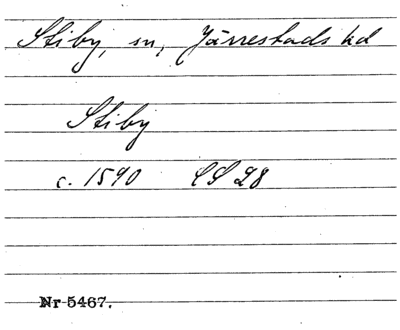 Stiby, sn, Järrestads hd
Stiby
c. 1590 CS 28
Nr 5467.